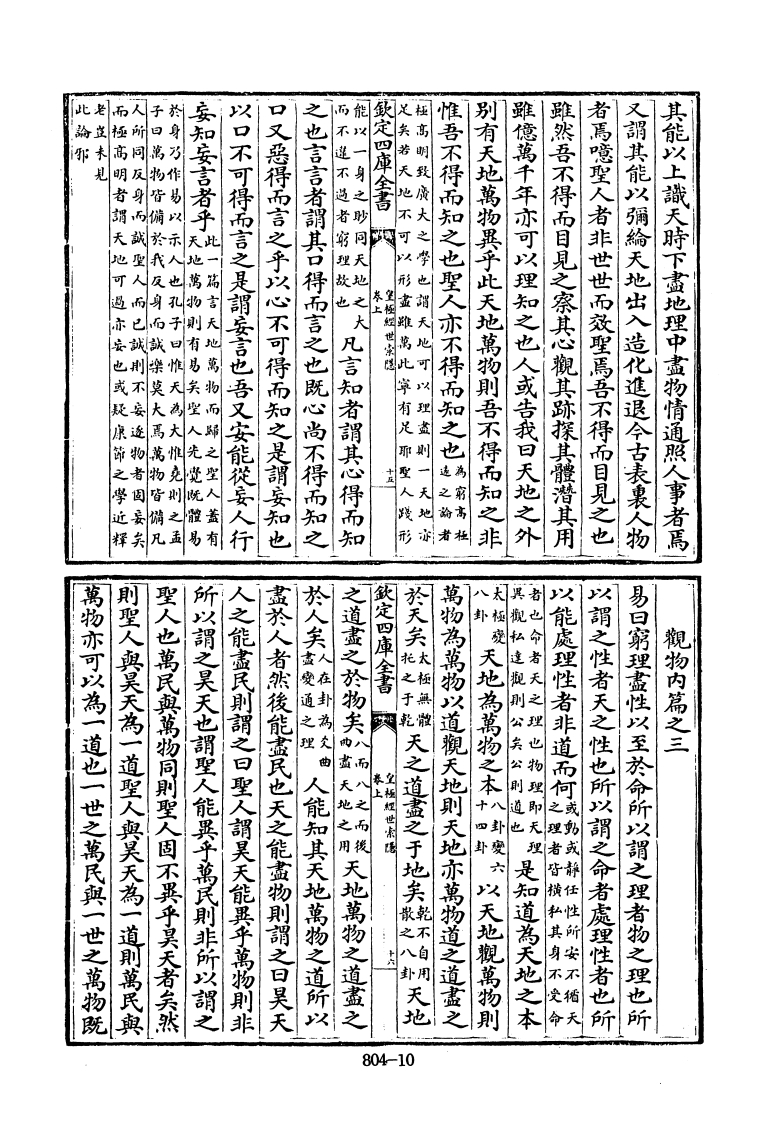 其能以上識天時下盡地理中盡物情通照人事者焉
又謂其能以彌綸天地出入造化進退今古表裏人物
者焉噫聖人者非世世而效聖焉吾不得而目見之也
雖然吾不得而目見之察其心觀其跡探其體潛其用
雖億萬千年亦可以理知之也人或告我曰天地之外
別有天地萬物異乎此天地萬物則吾不得而知之非
惟吾不得而知之也聖人亦不得而知之也為窮高極遠之論者
極高明致廣大之學也謂天地可以理盡則一天地亦
足矣若天地不可以形盡雖萬此寧有足耶聖人踐形
欽定四庫全書
皇極經世索隱
卷上
十五
能以一身之眇同天地之大
而不遑不過者窮理故也
凡言知者謂其心得而知
之也言言者謂其口得而言之也既心尚不得而知之
口又惡得而言之乎以心不可得而知之是謂妄知也
以口不可得而言之是謂妄言也吾又安能從妄人行
妄知妄言者乎此一篇言天地萬物而歸之聖人蓋有天地萬物則有易矣聖人先覺既體易
於身乃作易以示人也孔子曰惟天為大惟堯則之孟
子曰萬物皆備於我反身而誠樂莫大焉萬物皆備凡
人所同反身而誠聖人而已誠則不妄逐物者固妄矣
而極高明者謂天地可過亦妄也或疑康節之學近釋
老豈未見
此論邪
觀物內篇之三
易曰窮理盡性以至於命所以謂之理者物之理也所
以謂之性者天之性也所以謂之命者處理性者也所
以能處理性者非道而何或動或靜任性所安不循天之理者皆橫私其身不受命
者也命者天之理也物理即天理
異觀私達觀則公矣公則道也
是知道為天地之本
太極變八卦
天地為萬物之本八卦變六十四卦以天地觀萬物則
萬物為萬物以道觀天地則天地亦萬物道之道盡之
於天矣太極無體托之于乾天之道盡之于地矣乾不自用散之八卦天地
欽定四庫全書
皇極經世索隱
卷上
十六
之道盡之於物矣八而八之而後兩盡天地之用天地萬物之道盡之
於人矣人在卦為爻曲盡變通之理人能知其天地萬物之道所以
盡於人者然後能盡民也天之能盡物則謂之曰昊天
人之能盡民則謂之曰聖人謂昊天能異乎萬物則非
所以謂之昊天也謂聖人能異乎萬民則非所以謂之
聖人也萬民與萬物同則聖人固不異乎昊天者矣然
則聖人與昊天為一道聖人與昊天為一道則萬民與
萬物亦可以為一道也一世之萬民與一世之萬物既
804-10